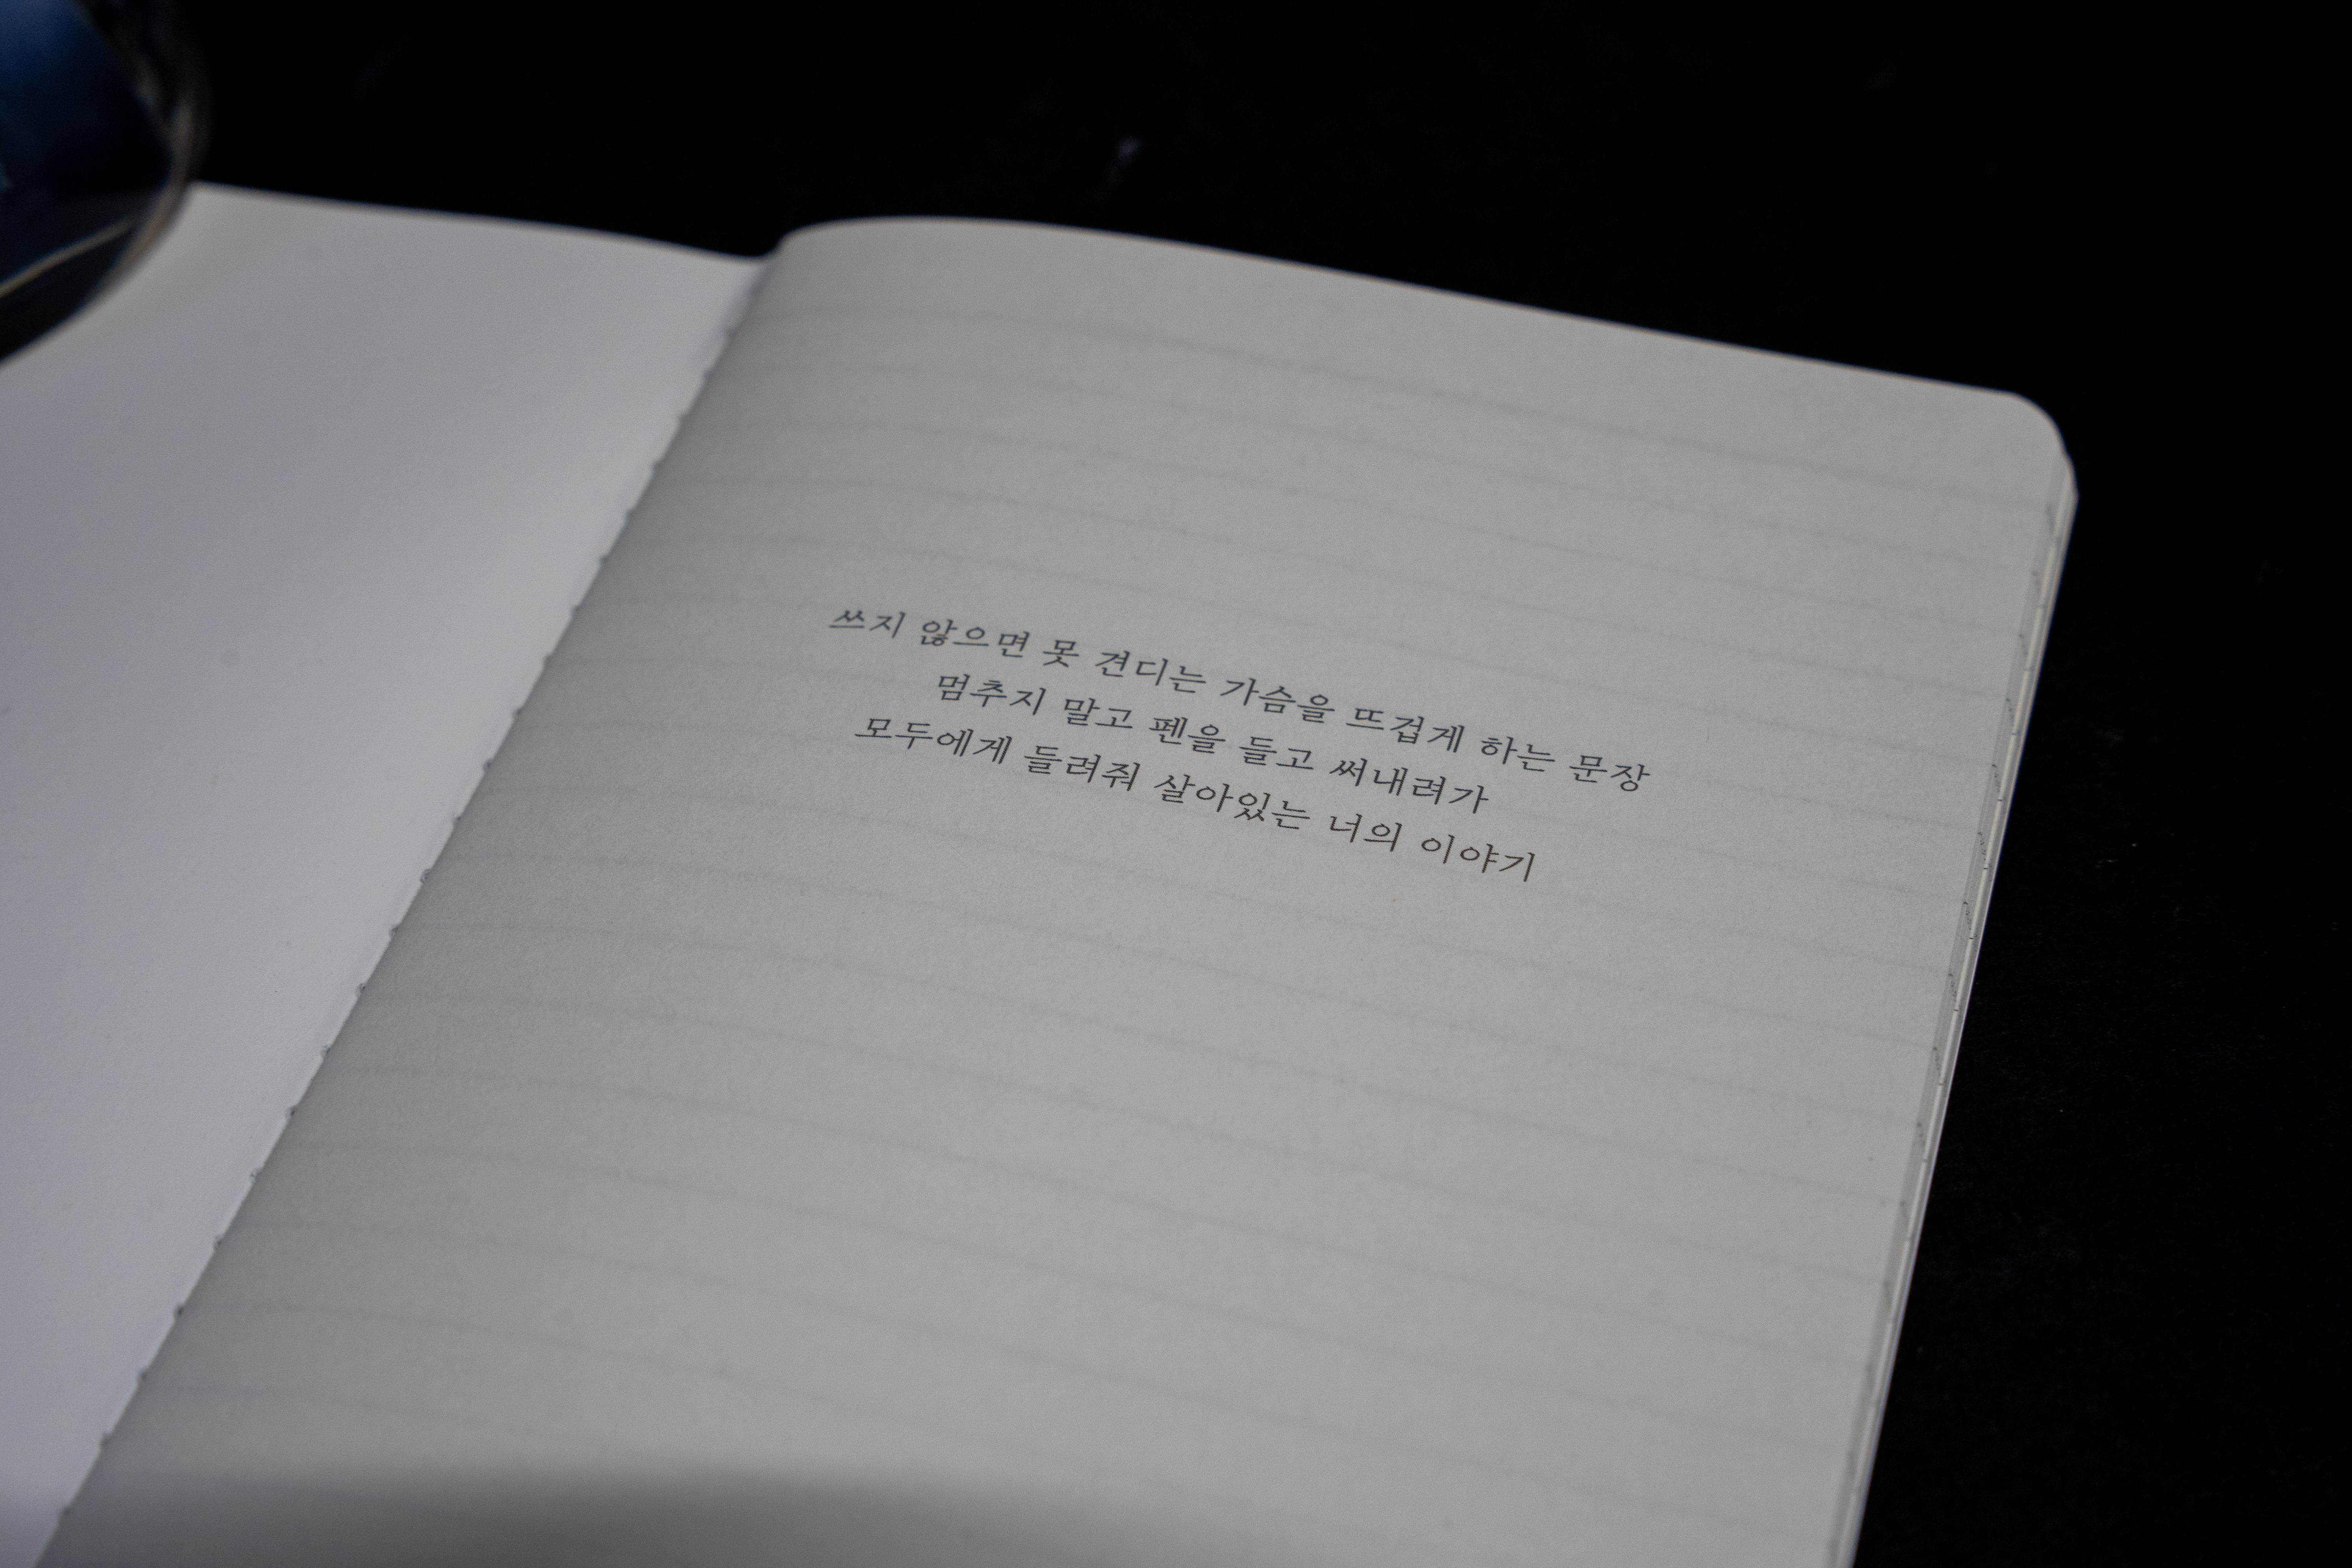 쓰지 않으면 못 견디는 가슴을 뜨겁게 하는 문장
멈추지 말고 펜을 들고 써내려가
모두에게 들려줘 살아있는 너의 이야기